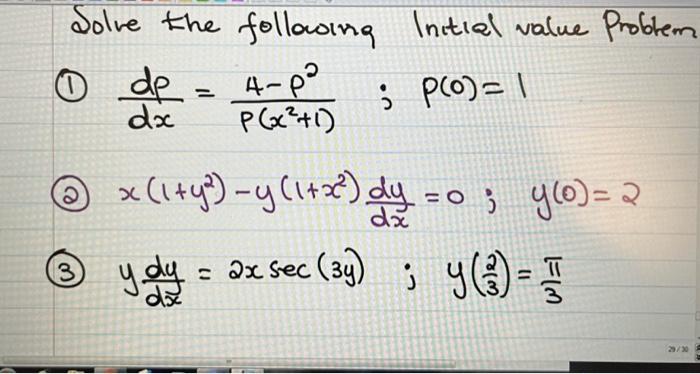 Solve the following Initial value Problem
① dp/dx = 4-p²/p(x²+1) ; p(0)=1
② x(1+y²)-y(1+x²) dy/dx =0 ; y(0)=2
③ y dy/dx = 2x sec(3y) ; y(2/3)=π/3
29/30